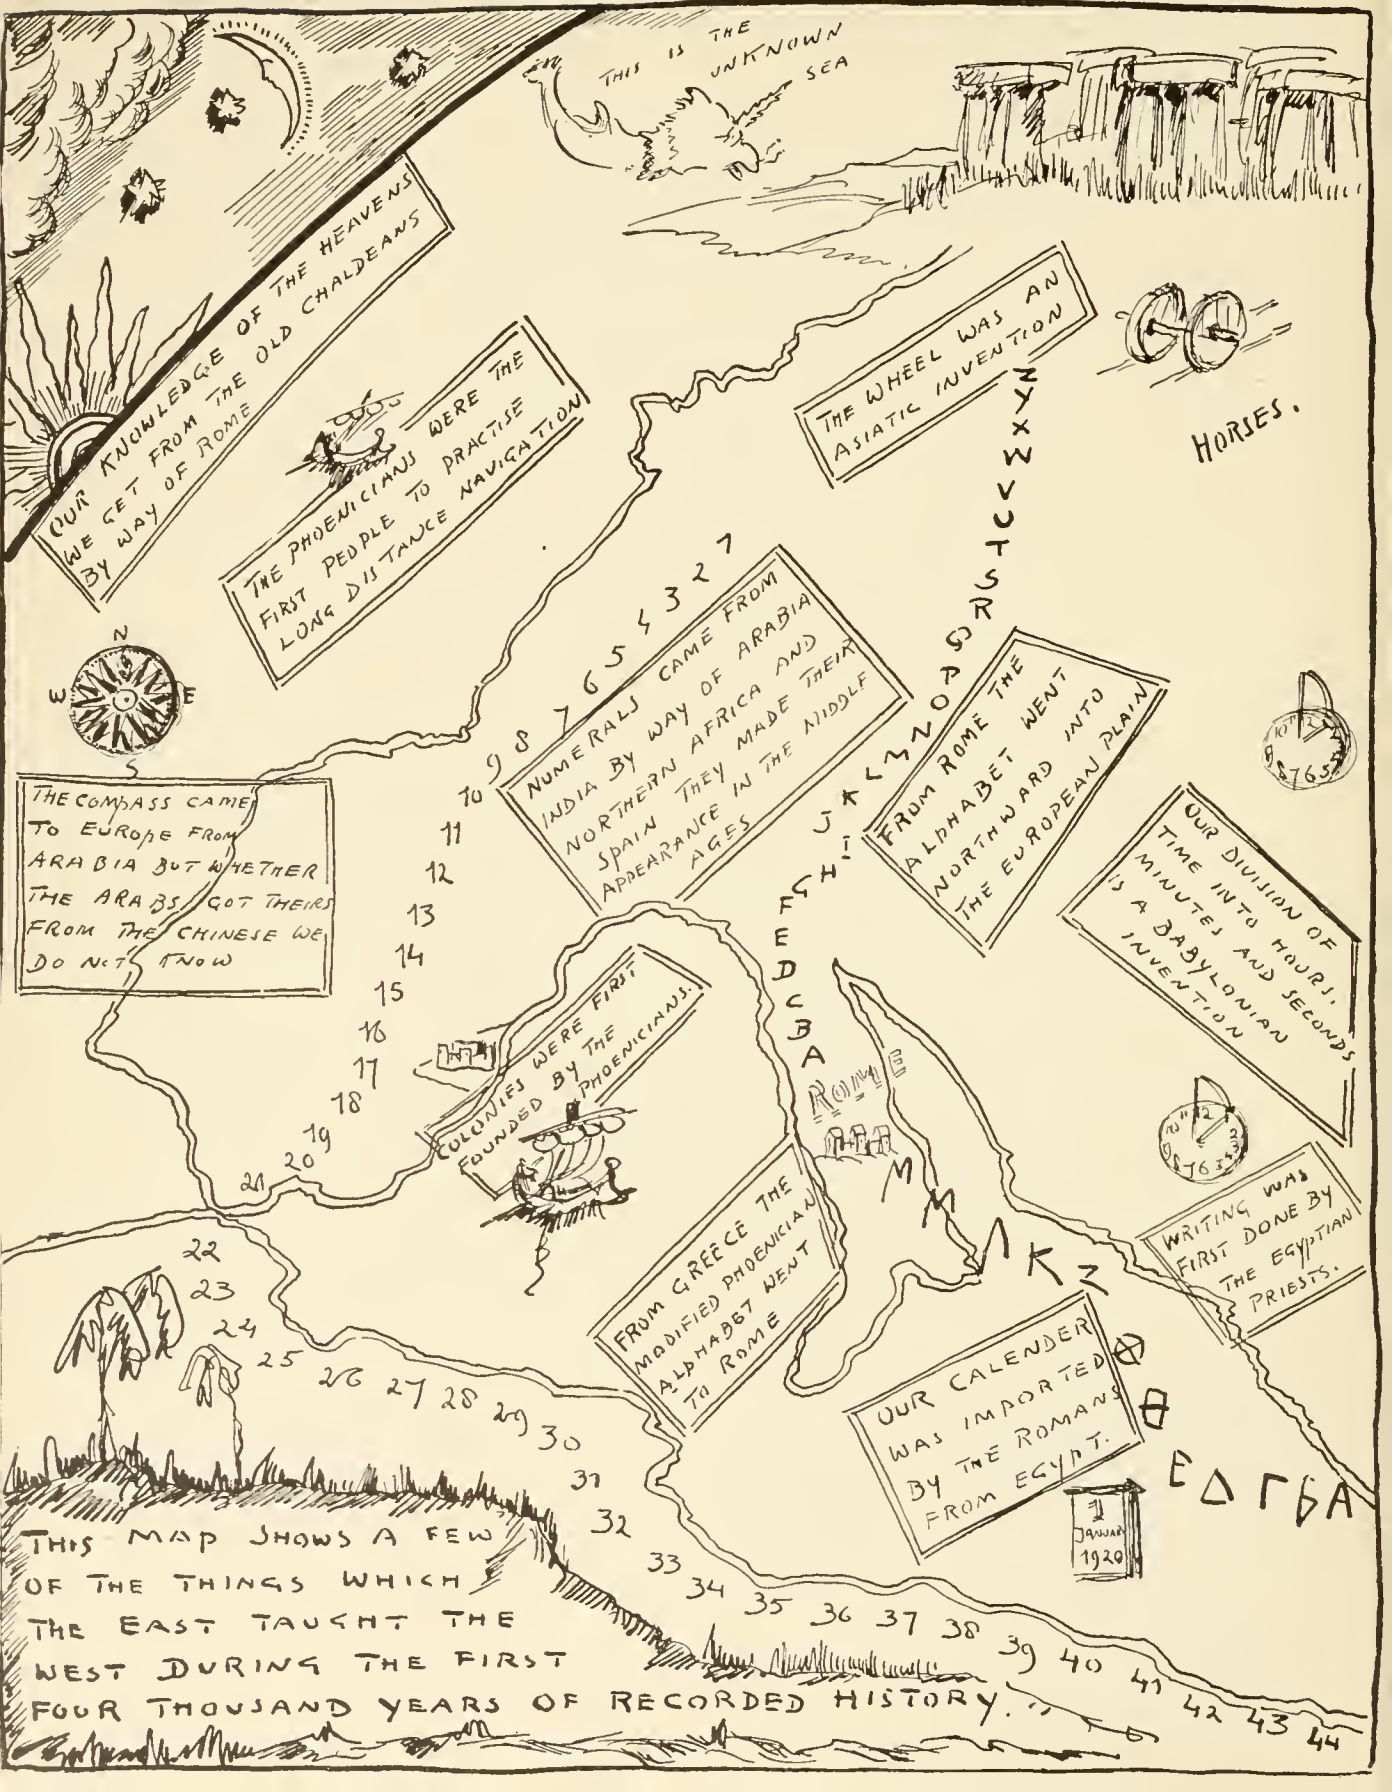 THIS IS THE
UNKNOWN
SEA
OUR KNOWLEDGE OF THE HEAVENS
WE GET FROM THE OLD CHALDEANS
BY WAY OF ROME
THE PHOENICIANS WERE THE
FIRST PEOPLE TO PRACTISE
LONG DISTANCE NAVIGATION
THE WHEEL WAS AN
ASIATIC INVENTION
HORSES.
N
W
E
S
THE COMPASS CAME
TO EUROPE FROM
ARABIA BUT WHETHER
THE ARABS GOT THEIRS
FROM THE CHINESE WE
DO NOT KNOW
NUMERALS CAME FROM
INDIA BY WAY OF ARABIA
NORTHERN AFRICA AND
SPAIN THEY MADE THEIR
APPEARANCE IN THE MIDDLE
AGES
1 2 3 4 5 6 7 8 9 10 11 12 13 14 15 16 17 18 19 20 21 22 23 24 25 26 27 28 29 30 31 32 33 34 35 36 37 38 39 40 41 42 43 44
Z Y X W V U T S R Q P O N M L K J I H G F E D C B A
FROM ROME THE
ALPHABET WENT
NORTHWARD INTO
THE EUROPEAN PLAIN
OUR DIVISION OF
TIME INTO HOURS.
MINUTES AND SECONDS
IS A BABYLONIAN
INVENTION
COLONIES WERE FIRST
FOUNDED BY THE
PHOENICIANS.
ROME
FROM GREECE THE
MODIFIED PHOENICIAN
ALPHABET WENT
TO ROME
WRITING WAS
FIRST DONE BY
THE EGYPTIAN
PRIESTS.
OUR CALENDER
WAS IMPORTED
BY THE ROMANS
FROM EGYPT.
Λ K
Θ E Δ Γ Б A
1
JANUAR
1920
THIS MAP SHOWS A FEW
OF THE THINGS WHICH
THE EAST TAUGHT THE
WEST DURING THE FIRST
FOUR THOUSAND YEARS OF RECORDED HISTORY.